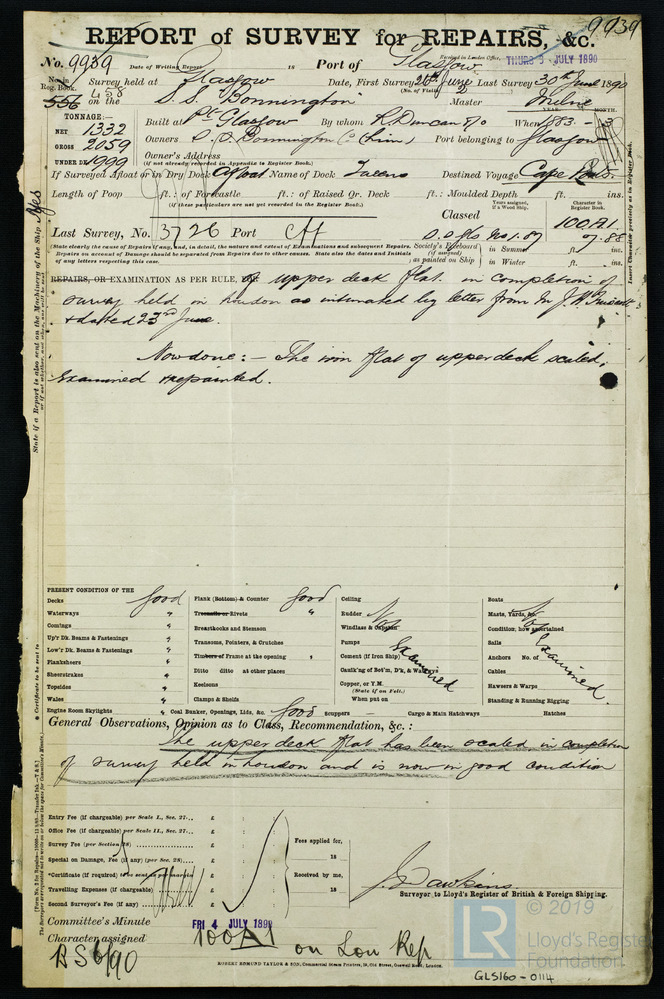 9939
REPORT of SURVEY for REPAIRS, &c.
No. 9939 Date of Writing Report 18 Port of Glasgow Received in London Office, THURS 3 JULY 1890
No. in Reg. Book. Survey held at Glasgow Date, First Survey 26th June Last Survey 30th June 1890
(No. of Visits 2
556 458 on the S.S. "Bonnington" Master Milne
TONNAGE:— MONTH.
NET 1332 Built at Pt. Glasgow By whom R. Duncan & Co When 1883.-
GROSS 2059 Owners Bonnington Co (Lim) Port belonging to Glasgow
UNDER DK 1999 Owner's Address
(if not already recorded in Appendix to Register Book.)
If Surveyed Afloat or in Dry Dock Afloat Name of Dock Queens Destined Voyage Cape
Length of Poop ft. : of Forecastle ft. : of Raised Qr. Deck ft. : Moulded Depth ft. ins.
(if these particulars are not yet recorded in the Register Book.)
Years assigned, if a Wood Ship. Character in Register Book.
Classed 100A1
Last Survey, No. 3726 Port Cff No 1.87 7.88
(State clearly the cause of Repairs if any, and, in detail, the nature and extent of Examinations and subsequent Repairs.
Repairs on account of Damage should be separated from Repairs due to other causes. State also the dates and Initials
of any letters respecting this case.
Society's Freeboard (if assigned) as painted on Ship in Summer ft. ins.
in Winter ft. ins.
Insert Character precisely as in Register Book.
REPAIRS, OR EXAMINATION AS PER RULE, of upper deck flat in completion of
survey held in London as intimated by letter from Mr J.W.
& dated 23rd June.
Now done:— The iron flat of upper deck scaled,
examined & repainted.
State if a Report is also sent on the Machinery of the Ship Yes
PRESENT CONDITION OF THE
Decks good
Waterways "
Comings "
Up'r Dk. Beams & Fastenings "
Low'r Dk. Beams & Fastenings "
Planksheers "
Sheerstrakes "
Topsides "
Wales "
Engine Room Skylights "
Plank (Bottom) & Counter good
Treenails or Rivets "
Breasthooks and Stemson
Transoms, Pointers, & Crutches
Timbers of Frame at the opening
Ditto ditto at other places
Keelsons
Clamps & Shelfs
Coal Bunker, Openings, Lids, &c. Good
Ceiling
Rudder
Windlass & Capstan
Pumps
Cement (if Iron Ship)
Caulk'ng of Bot'm, D'k, & Waterw'ys
Copper, or Y.M.
(State if on Felt.)
When put on
Not Examined
Scuppers
Cargo & Main Hatchways
Boats
Masts, Yards, &c.
Condition, how ascertained
Sails
Anchors No. of
Cables
Hawsers & Warps
Standing & Running Rigging
Hatches
Not Examined.
General Observations, Opinion as to Class, Recommendation, &c. :
The upper deck flat has been scaled, in completion
of survey held in London and is now in good condition
Entry Fee (if chargeable) per Scale I., Sec. 27... £
Office Fee (if chargeable) per Scale II., Sec. 27... £
Survey Fee (per Section 28) £
Special on Damage, Fee (if any) (per Sec. 28).... £
*Certificate (if required) to be sent as per margin
Travelling Expenses (if chargeable) £
Second Surveyor's Fee (if any) £
Fees applied for,
18
Received by me,
18
J. Dawkins
Surveyor to Lloyd's Register of British & Foreign Shipping.
Committee's Minute FRI 4 JULY 1890
Character assigned 100A1 on Lon Rep
BS 6/90
ROBERT EDMUND TAYLOR & SON, Commercial Steam Printers, 19, Old Street, Goswell Road, London.
© 2019
LR Lloyd's Register
Foundation
GLS160-0114